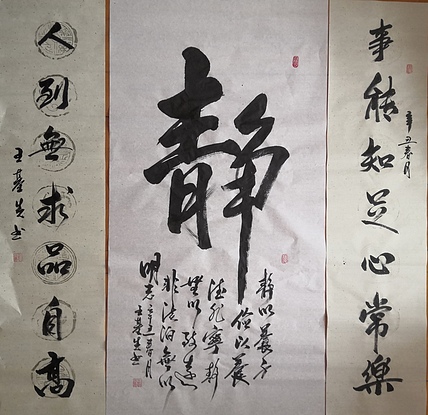 事能知足心常樂
辛丑春月
靜
靜以養身
儉以養
德非寧靜
無以致遠
非淡泊無以
明志 辛丑春月
人到無求品自高